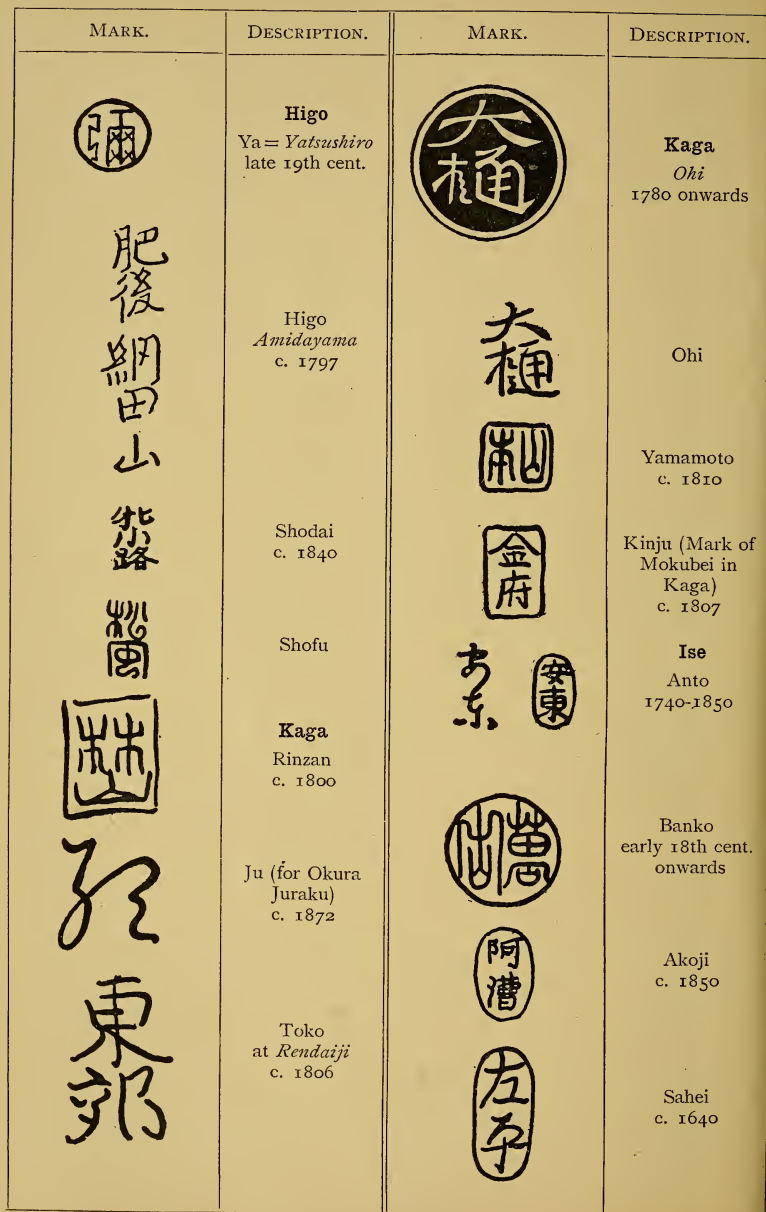 MARK.
DESCRIPTION.
彌
Higo
Ya = Yatsushiro
late 19th cent.
肥
後
網
田
山
Higo
Amidayama
c. 1797
Shodai
c. 1840
松
風
Shofu
林
山
Kaga
Rinzan
c. 1800
Ju (for Okura
Juraku)
c. 1872
東
郊
Toko
at Rendaiji
c. 1806
MARK.
DESCRIPTION.
大
樋
Kaga
Ohi
1780 onwards
大
樋
Ohi
山本
Yamamoto
c. 1810
金
府
Kinju (Mark of
Mokubei in
Kaga)
c. 1807
安
東
安
東
Ise
Anto
1740-1850
萬古
Banko
early 18th cent.
onwards
阿
漕
Akoji
c. 1850
左
平
Sahei
c. 1640